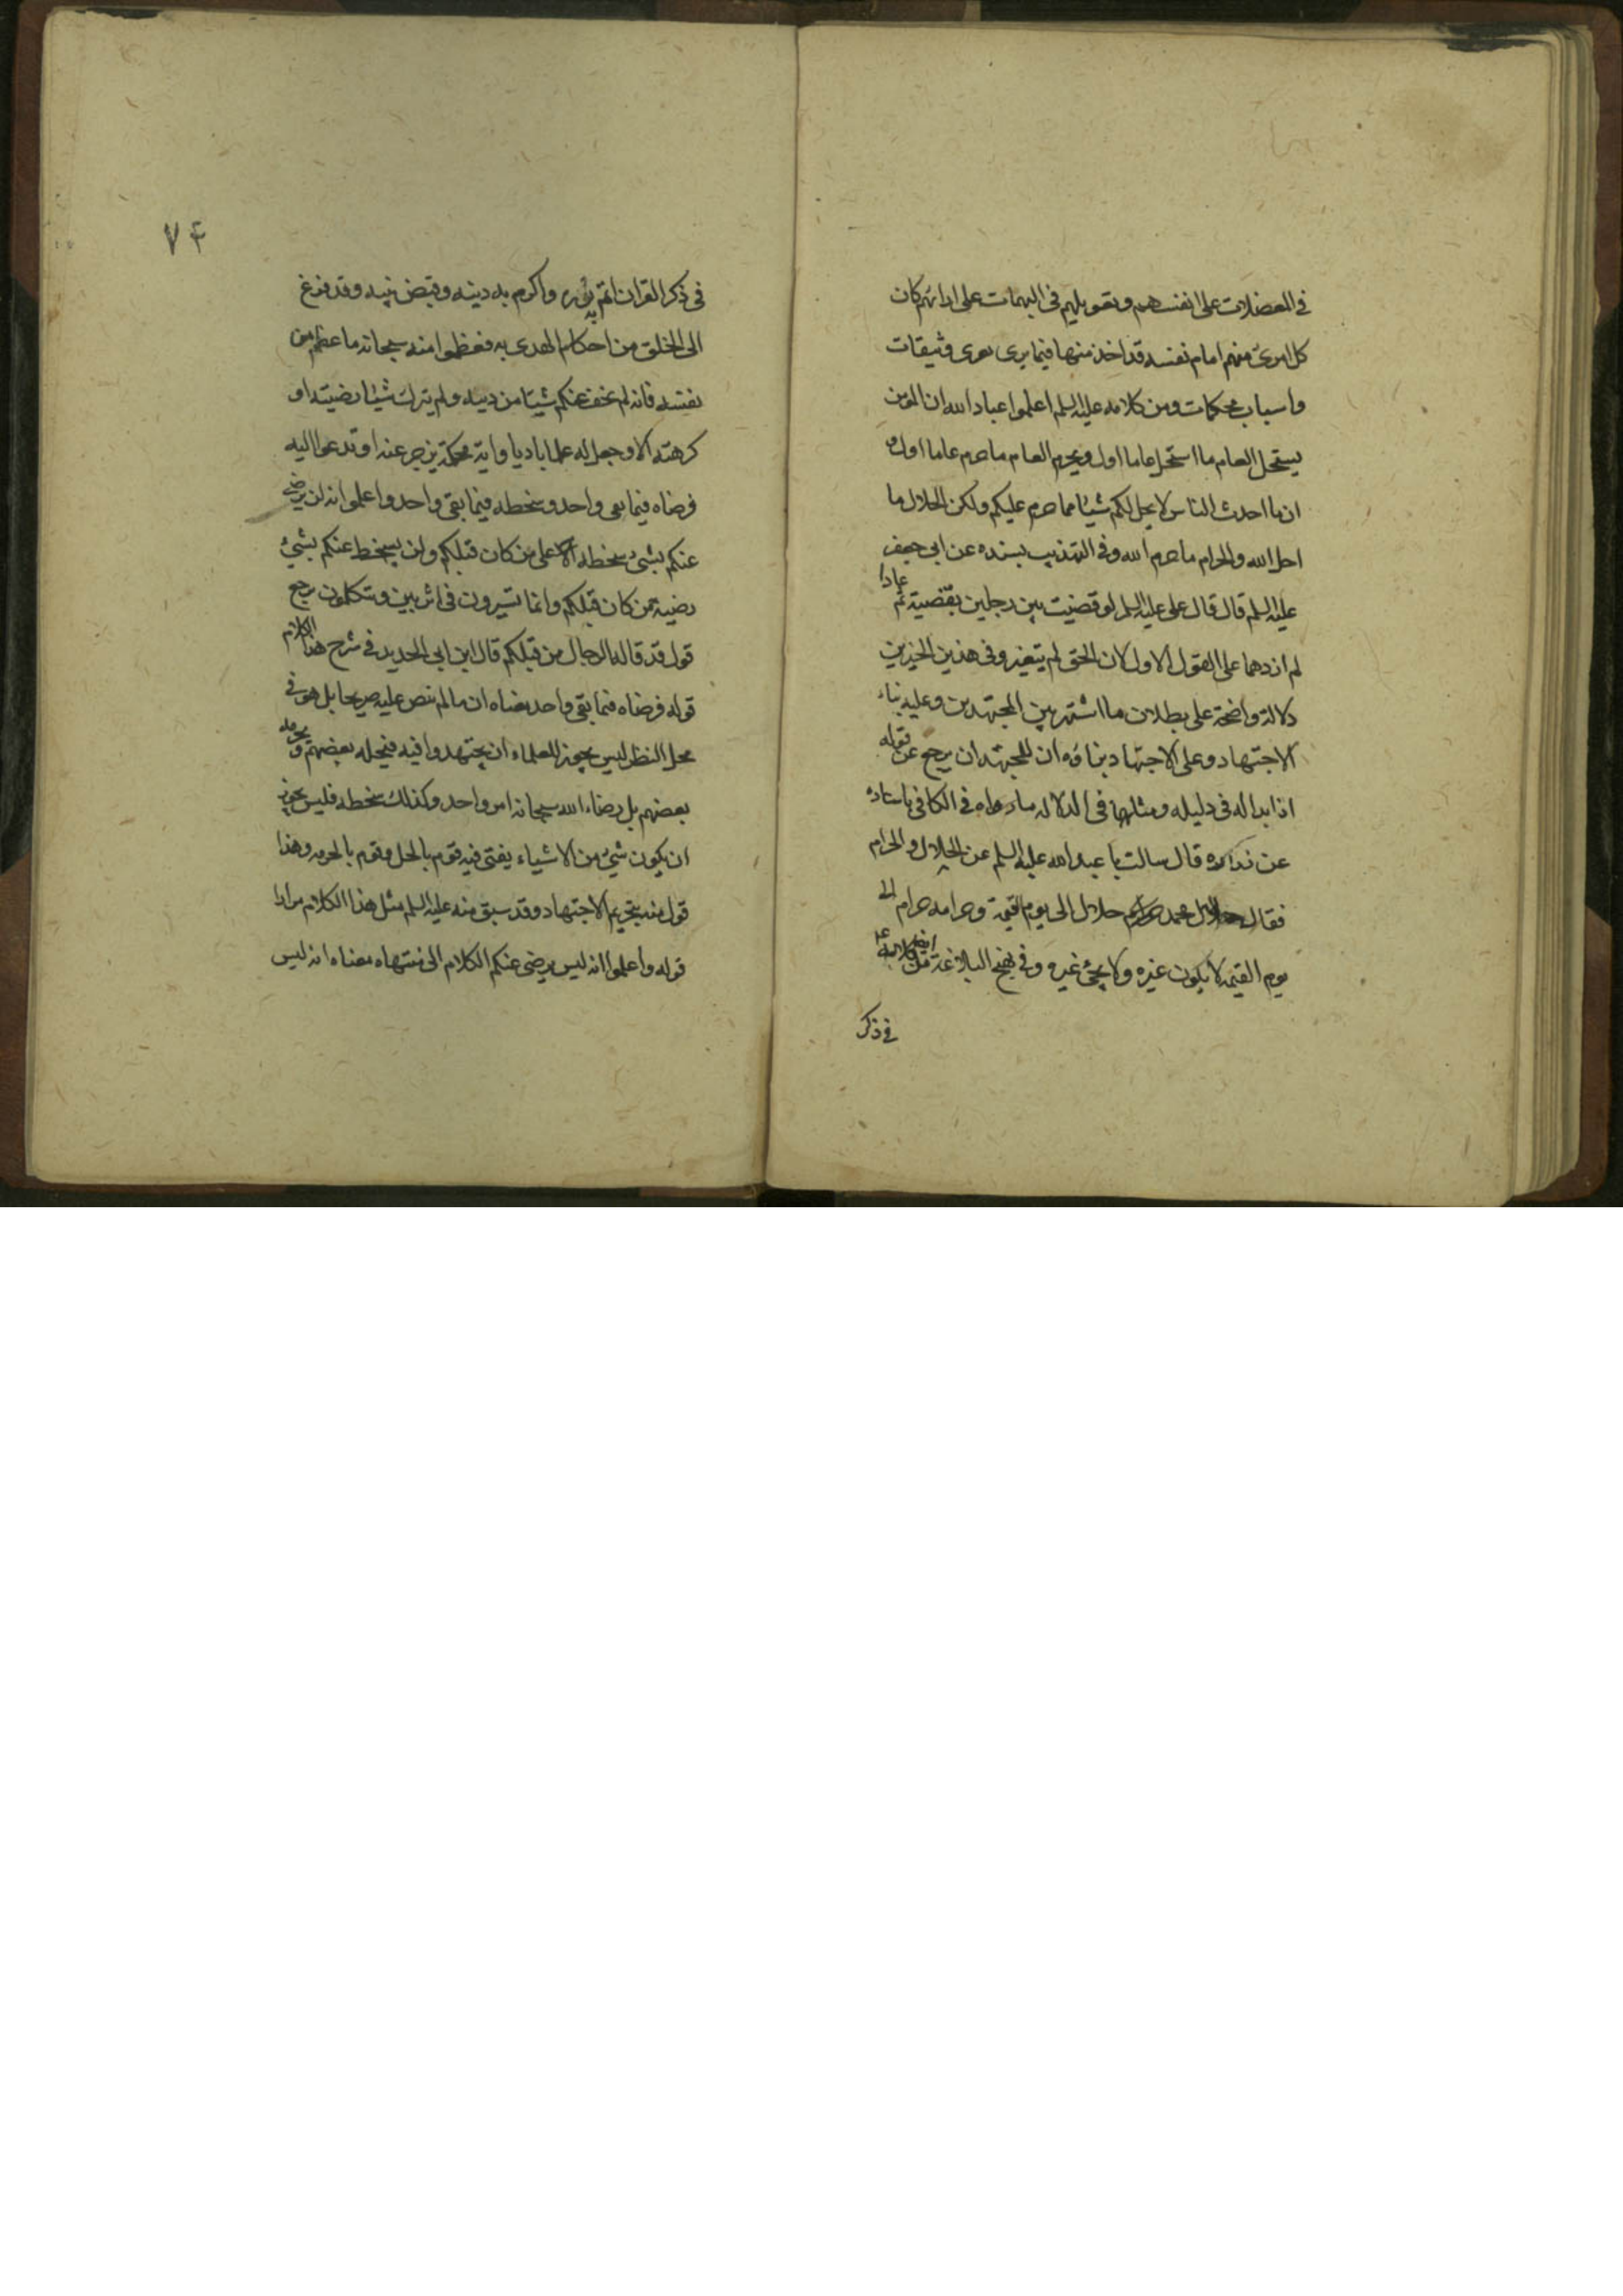 في المعضلات على انفسهم وتعويلهم في المبهمات على ارائهم كان
كل امرئ منهم امام نفسه قد اخذ منها فيما يرى بعرى وثيقات
واسباب محكمات ومن كلامه عليه السلم اعلموا عباد الله ان المؤمن
يستحل العام ما استحل عاما اول ويحرم العام ما حرم عاما اول و
ان ما احدث الناس لا يحل لكم شيئا مما حرم عليكم ولكن الحلال ما
احل الله والحرام ما حرم الله وفي التهذيب بسنده عن ابي جعفر
عليه السلم قال قال علي عليه السلم لو قضيت بين رجلين بقضية ثم عادا
لم ازدهما على القول الاول لان الحق لم يتغير وفي هذين الخبرين
دلالة واضحة على بطلان ما اشتهر بين المجتهدين وعليه بناء
الاجتهاد وعلى الاجتهاد بناؤه ان للمجتهد ان يرجع عن قوله
اذا بدا له في دليله ومثلها في الدلالة ما رواه في الكافي باسناده
عن زرارة قال سالت با عبد الله عليه السلم عن الحلال والحرام
فقال حلال محمد حلال الى يوم القيمة وحرامه حرام الى
يوم القيمة لا يكون غيره ولا يجئ غيره وفي نهج البلاغة من كلامه
في ذكر
٧۴
في ذكر القران اتم به نوره واكرم به دينه وقبض نبيه وقد فرغ
الى الخلق من احكام الهدى به فعظموا منه سبحانه ما عظم من
نفسه فانه لم يخف عنكم شيئا من دينه ولم يترك شيئا رضيه او
كرهه الا وجعل له علما باديا واية محكمة يزجر عنه او تدعوا اليه
فرضاه فيما بقى واحد وسخطه فيما بقى واحد واعلموا انه لن يرضى
عنكم بشئ سخطه على من كان قبلكم ولن يسخط عنكم بشئ
رضيه ممن كان قبلكم وانما تسيرون في اثر بين وتتكلمون برجع
قول قد قاله الرجال من قبلكم قال ابن ابي الحديد في شرح هذا الكلام
قوله فرضاه فيما بقى واحد معناه ان ما لم ينص عليه صريحا بل هو في
محل النظر ليس يجوز للعلماء ان يجتهدوا فيه فيحله بعضهم ويحرمه
بعضهم بل رضاء الله سبحانه امر واحد وكذلك سخطه فليس يجوز
ان يكون شئ من الاشياء يفتى فيه قوم بالحل وقوم بالحرمة وهذا
قول منه بتحريم الاجتهاد وقد سبق منه عليه السلم مثل هذا الكلام مرارا
قوله واعلموا انه ليس يرضى عنكم الكلام الى منتهاه معناه انه ليس